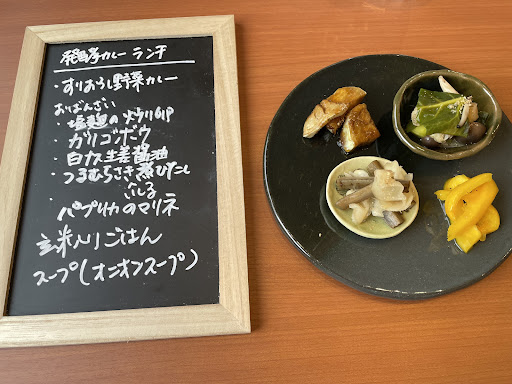 発酵カレー ランチ
・すりおろし野菜カレー
おばんざい
・塩麹の
・ガリゴボウ
・白ナス生姜醤油
・つるむらさき煮びたし
・パプリカのマリネ
玄米入りごはん
スープ(オニオンスープ)